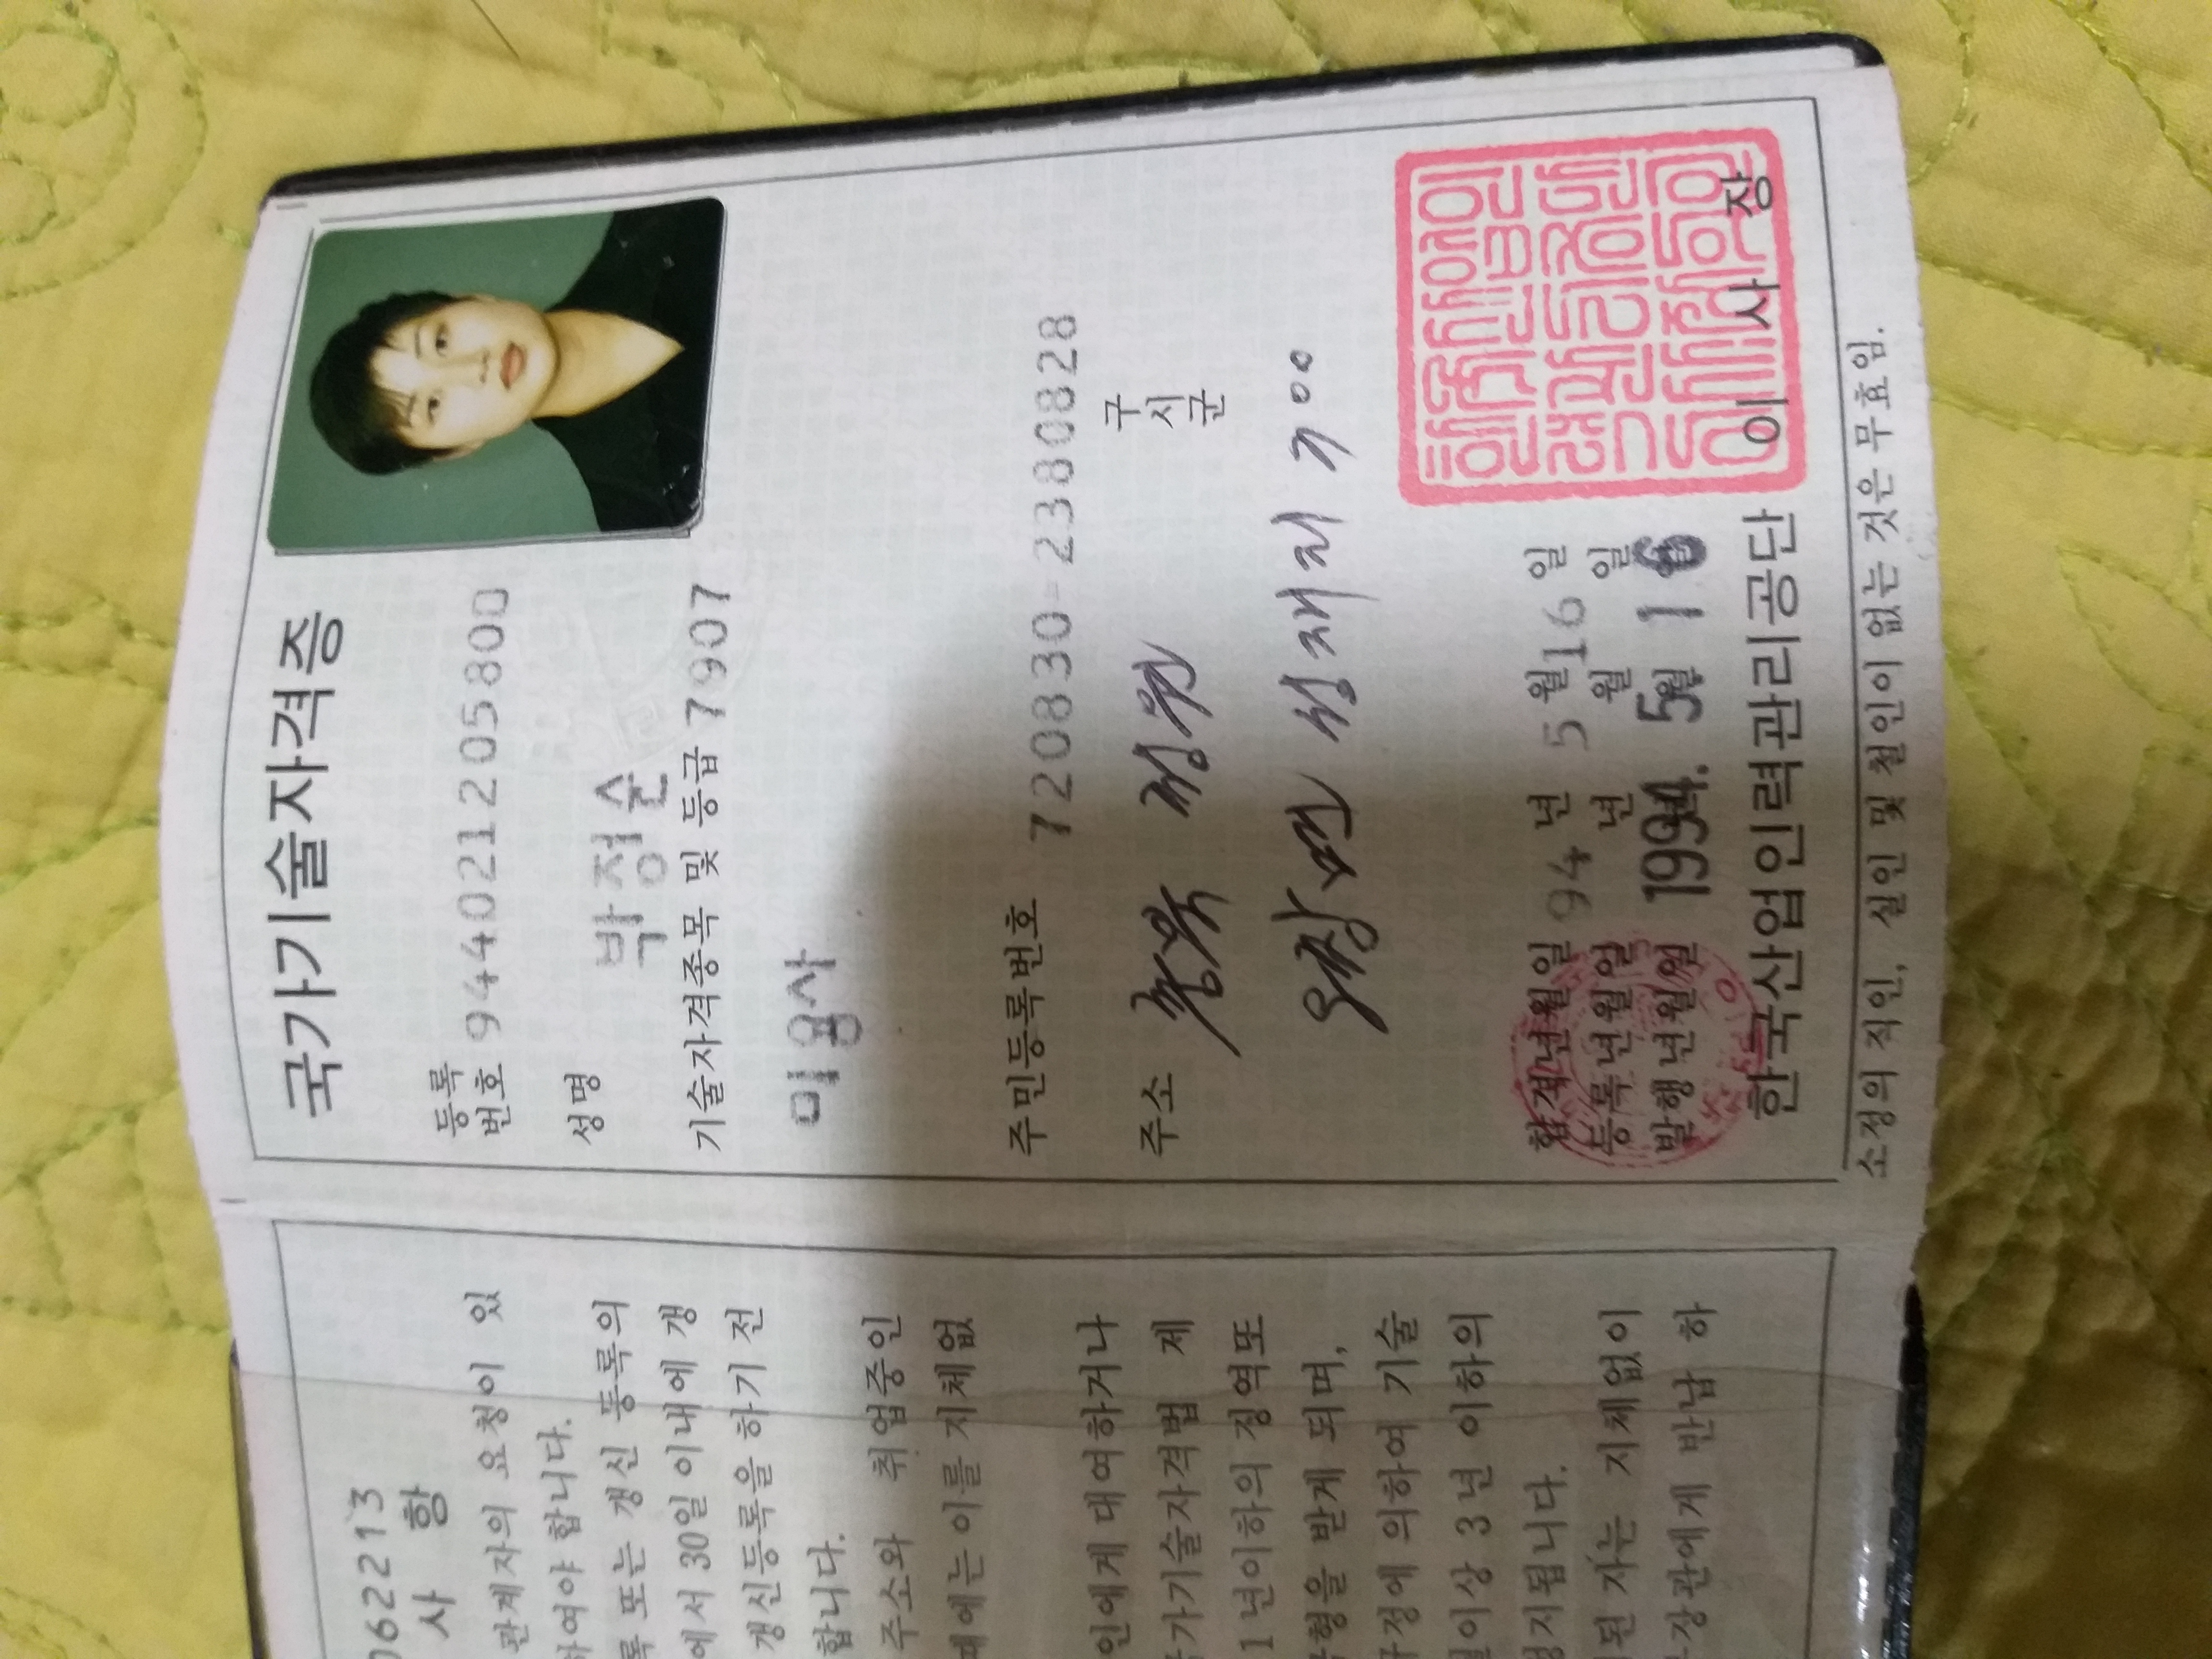 국가기술자격증
등록
번호 94402120580O
성명 박정순
기술자격종목 및 등급 7907
미용사
주민등록번호 720830-2380828
주소
구
시
군
합격년월일 94 년 5 월 16 일
등록년월일 년 월 일
발행년월일 1994. 5월 16
한국산업인력관리공단 이 사 장
소정의 직인, 실인 및 철인이 없는 것은 무효임.
062213
사 항
관계자의 요청이 있
하여야 합니다.
록 또는 갱신 등록의
에서 30일 이내에 갱
갱신등록을 하기 전
합니다.
주소와 취업중인
때에는 이를 지체없
인에게 대여하거나
가기술자격법 제
1년이하의 징역또
형을 받게 되며,
정에 의하여 기술
일이상 3년 이하의
정지됩니다.
된 자는 지체없이
장관에게 반납 하